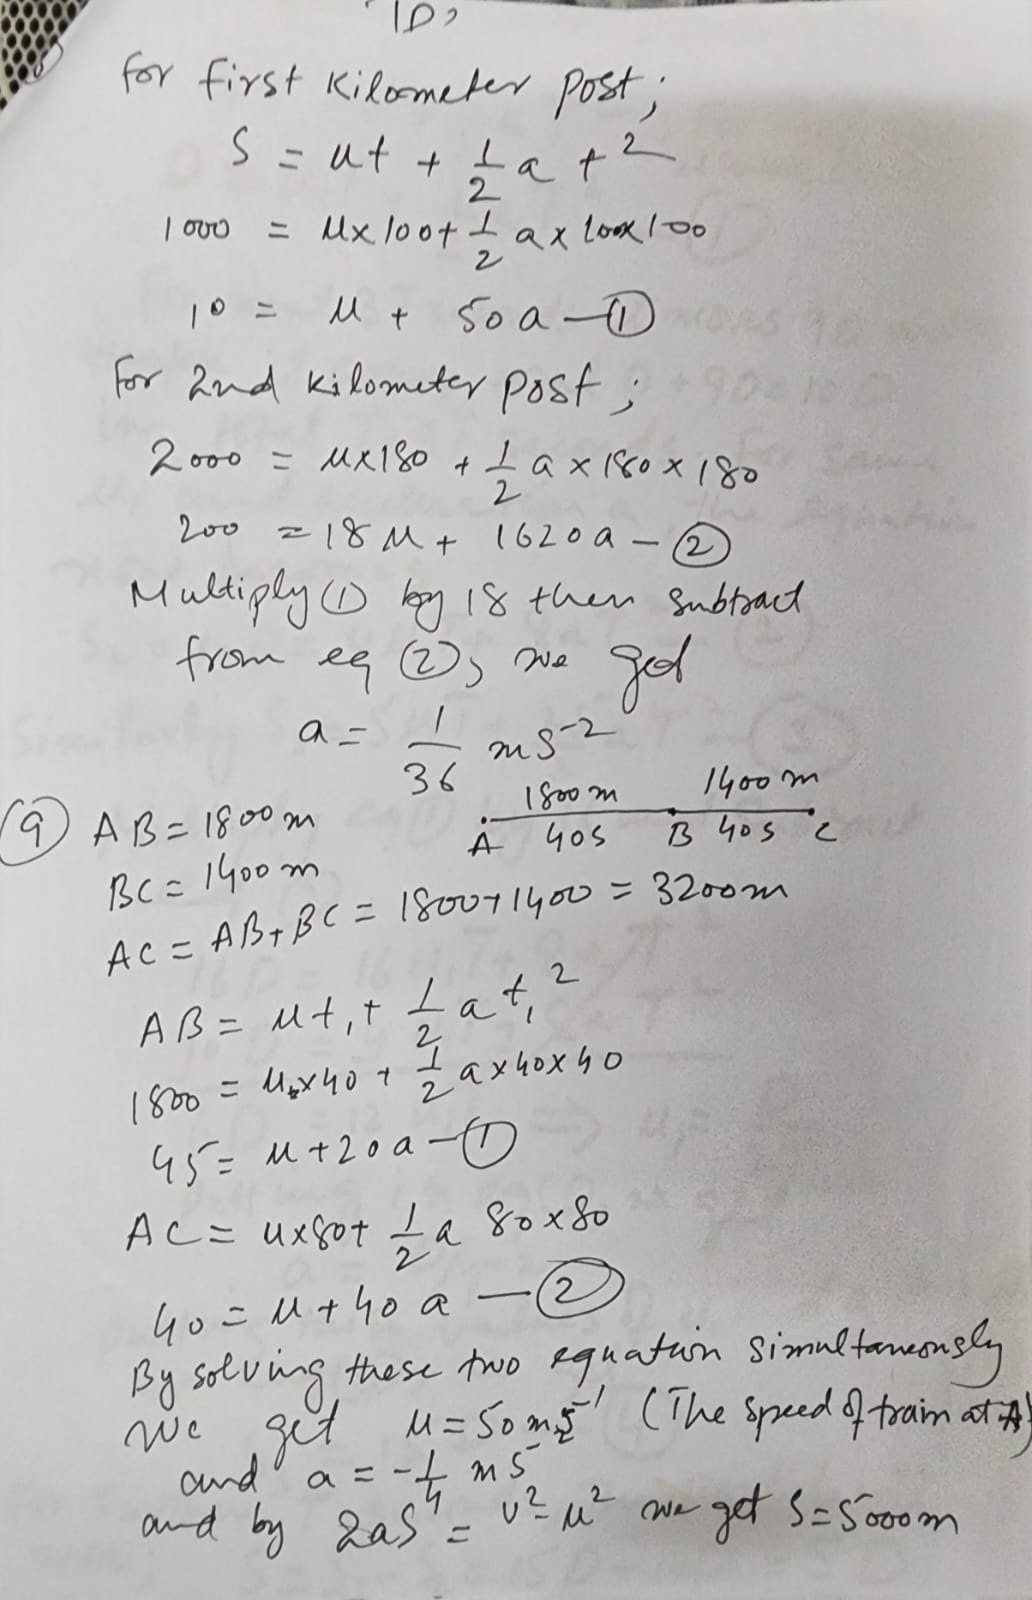 for first Kiloometer post;
S = ut + 1/2 a t²
1000 = u×100 + 1/2 a×100×100
10 = u + 50a — ①
For 2nd kilometer post;
2000 = u×180 + 1/2 a×180×180
200 = 18u + 1620a — ②
Multiply ① by 18 then subtract
from eq ②, we get
a = 1/36 ms⁻²
⑨ AB = 1800m
1800m 1400m
A 40s B 40s C
BC = 1400m
AC = AB + BC = 1800+1400 = 3200m
AB = ut₁ + 1/2 a t₁²
1800 = u×40 + 1/2 a×40×40
45 = u + 20a — ①
AC = u×80 + 1/2 a 80×80
40 = u + 40a — ②
By solving these two equation simultaneously
we get u = 50ms⁻¹ (The speed of train at A)
and a = -1/4 ms⁻²
and by 2aS = v² - u² we get S = 5000m